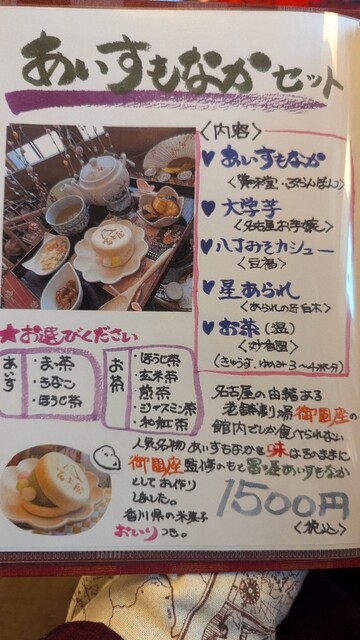 あいすもなかセット
〈内容〉
♥あいすもなか
♥大学芋
〈名古屋お芋嬢〉
♥八丁みそカシュー
〈豆福〉
♥星あられ
〈あられの匠白木〉
♥お茶(温)
〈妙香園〉
(きゅうす、ゆのみ3〜4杯分)
★お選びください
あいす
ま茶
きなこ
ほうじ茶
お茶
ほうじ茶
玄米茶
煎茶
ジャスミン茶
和紅茶
名古屋の由緒ある
老舗劇場御園座の
館内でしか食べられない
人気名物あいすもなかを味はそのままに
御園座監修のもと
あいすもなか
としてお作り
しました。
香川県の米菓子
おいりつき。
1500円
〈税込〉